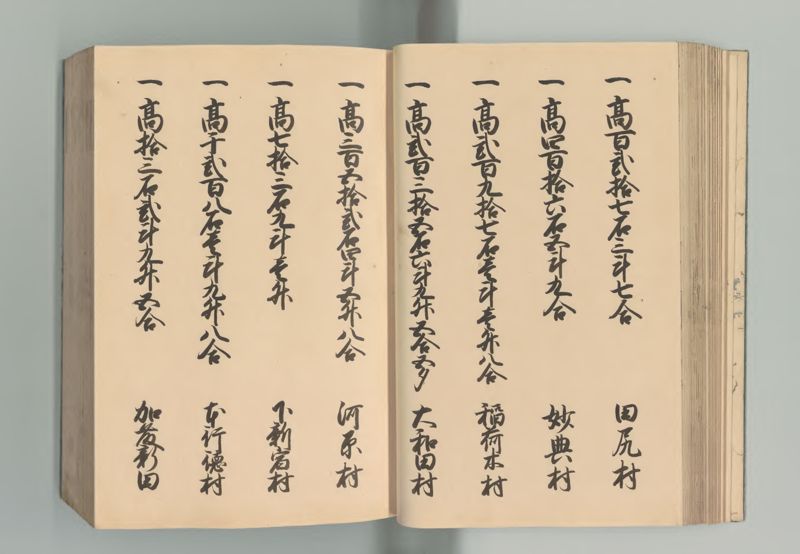 一高百弐拾七石三斗七合 田尻村
一高四百拾六石五斗九合 妙典村
一高弐百九拾七石壱斗壱升八合 稲荷木村
一高弐百三拾五石六斗九升五合五夕 大和田村
一高三百五拾弐石四斗五升八合 河原村
一高七拾三石九斗壱升 下新宿村
一高千弐百八石壱斗九升八合 本行徳村
一高拾三石弐斗九升五合 加藤新田